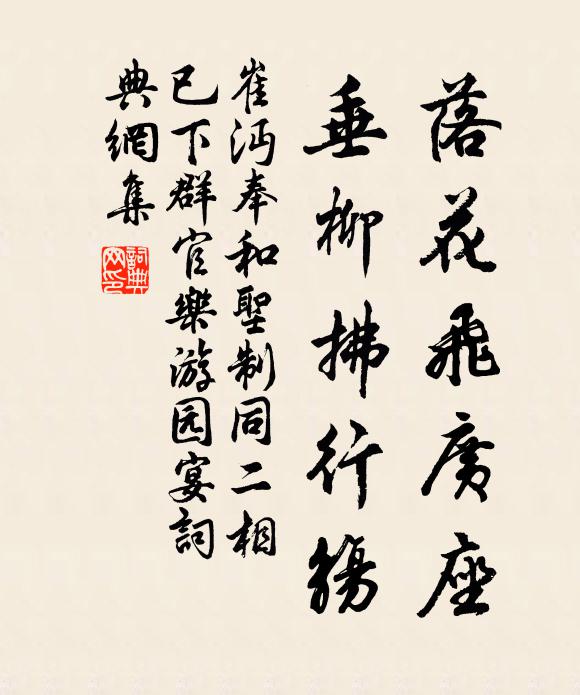 落花飛廣座
垂柳拂行觴
崔沔奉和聖制同二相
已下群官樂游园宴詞
典網集
詞典網印